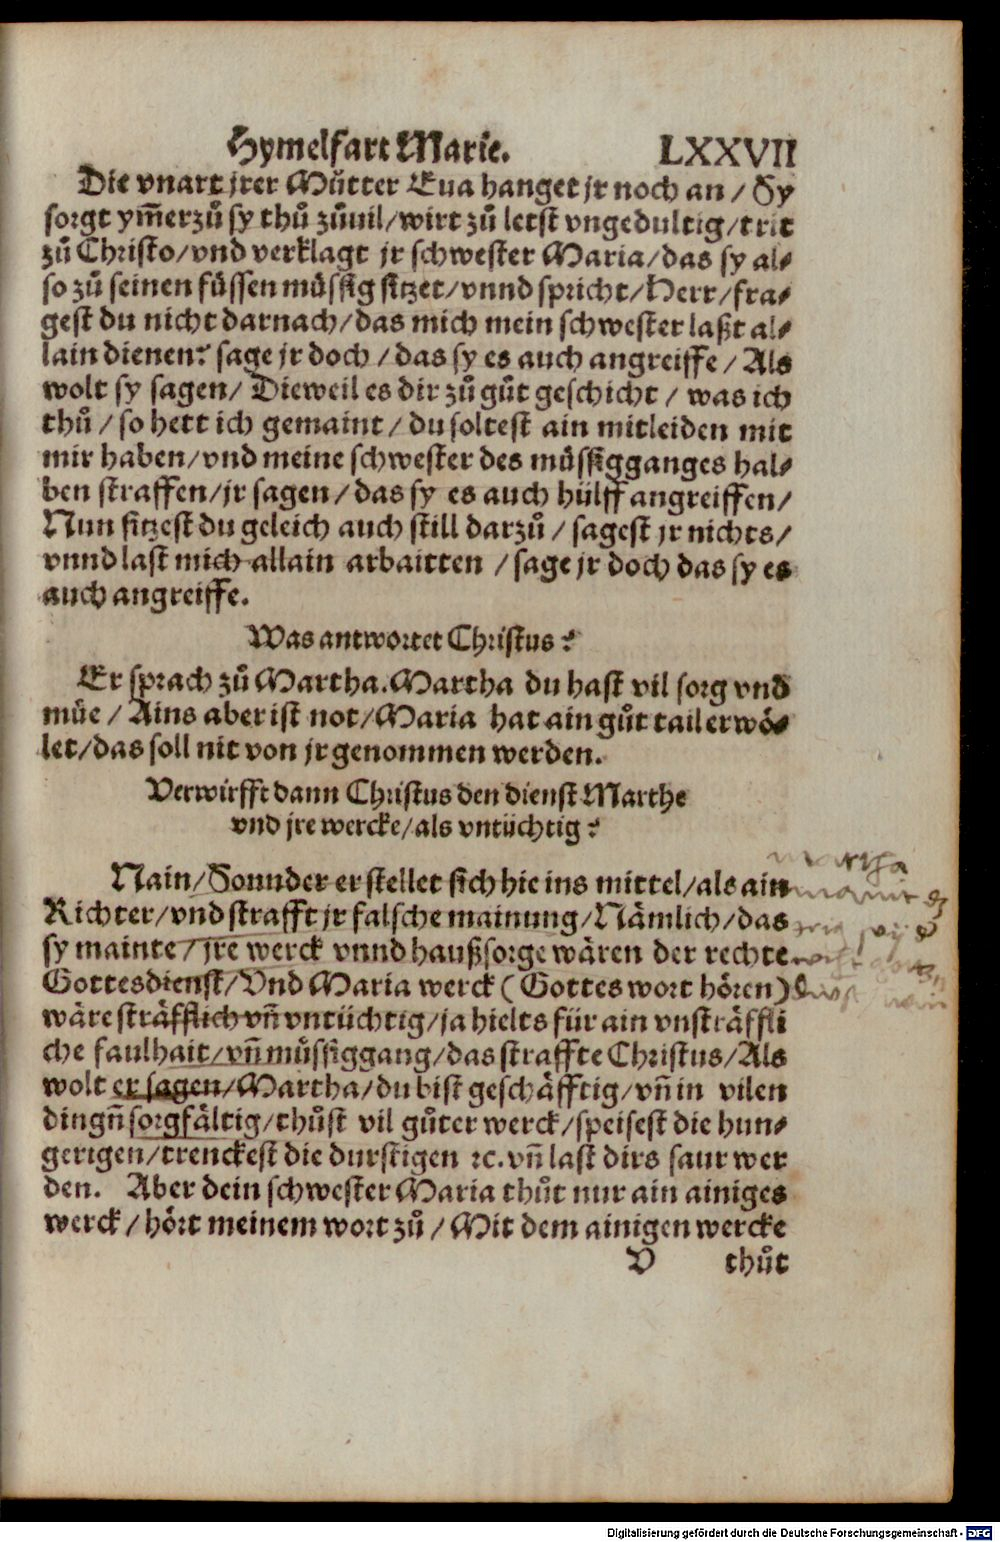 Hymelfart Marie. LXXVII
Die vnart jrer Můtter Eua hanget jr noch an / Sy
sorgt ym̃erzů sy thů zůuil/wirt zů letst vngedultig/trit
zů Christo/vnd verklagt jr schwester Maria/das sy al⸗
so zů seinen füssen müssig sitzet/vnnd spricht/Herr/fra⸗
gest du nicht darnach/das mich mein schwester laßt al⸗
lain dienen? sage jr doch/das sy es auch angreiffe/Als
wolt sy sagen/Dieweil es dir zů gůt geschicht/was ich
thů/so hett ich gemaint/du soltest ain mitleiden mit
mir haben/vnd meine schwester des müssigganges hal⸗
ben straffen/jr sagen/das sy es auch hülff angreiffen/
Nun sitzest du geleich auch still darzů/sagest jr nichts/
vnnd last mich allain arbaitten /sage jr doch das sy es
auch angreiffe.
Was antwortet Christus?
Er sprach zů Martha. Martha du hast vil sorg vnd
müe/Ains aber ist not/Maria hat ain gůt tail erwö⸗
let/das soll nit von jr genommen werden.
Verwirfft dann Christus den dienst Marthe
vnd jre wercke/als vntüchtig?
Nain/Sonnder er stellet sich hie ins mittel/als ain
Richter/vnd strafft jr falsche mainung/Nämlich/das
sy mainte/jre werck vnnd haußsorge wären der rechte
Gottesdienst/Vnd Maria werck (Gottes wort hören)
wäre sträfflich vñ vntüchtig/ja hielts für ain vnsträffli
che faulhait/vñ müssiggang/das straffte Christus/Als
wolt er sagen/Martha/du bist geschäfftig/vñ in vilen
dingñ sorgfältig/thůst vil gůter werck/speisest die hun⸗
gerigen/trenckest die durstigen ꝛc. vñ last dirs saur wer
den. Aber dein schwester Maria thůt nur ain ainiges
werck/hört meinem wort zů/Mit dem ainigen wercke
V thůt
martha
Digitalisierung gefördert durch die Deutsche Forschungsgemeinschaft - DFG